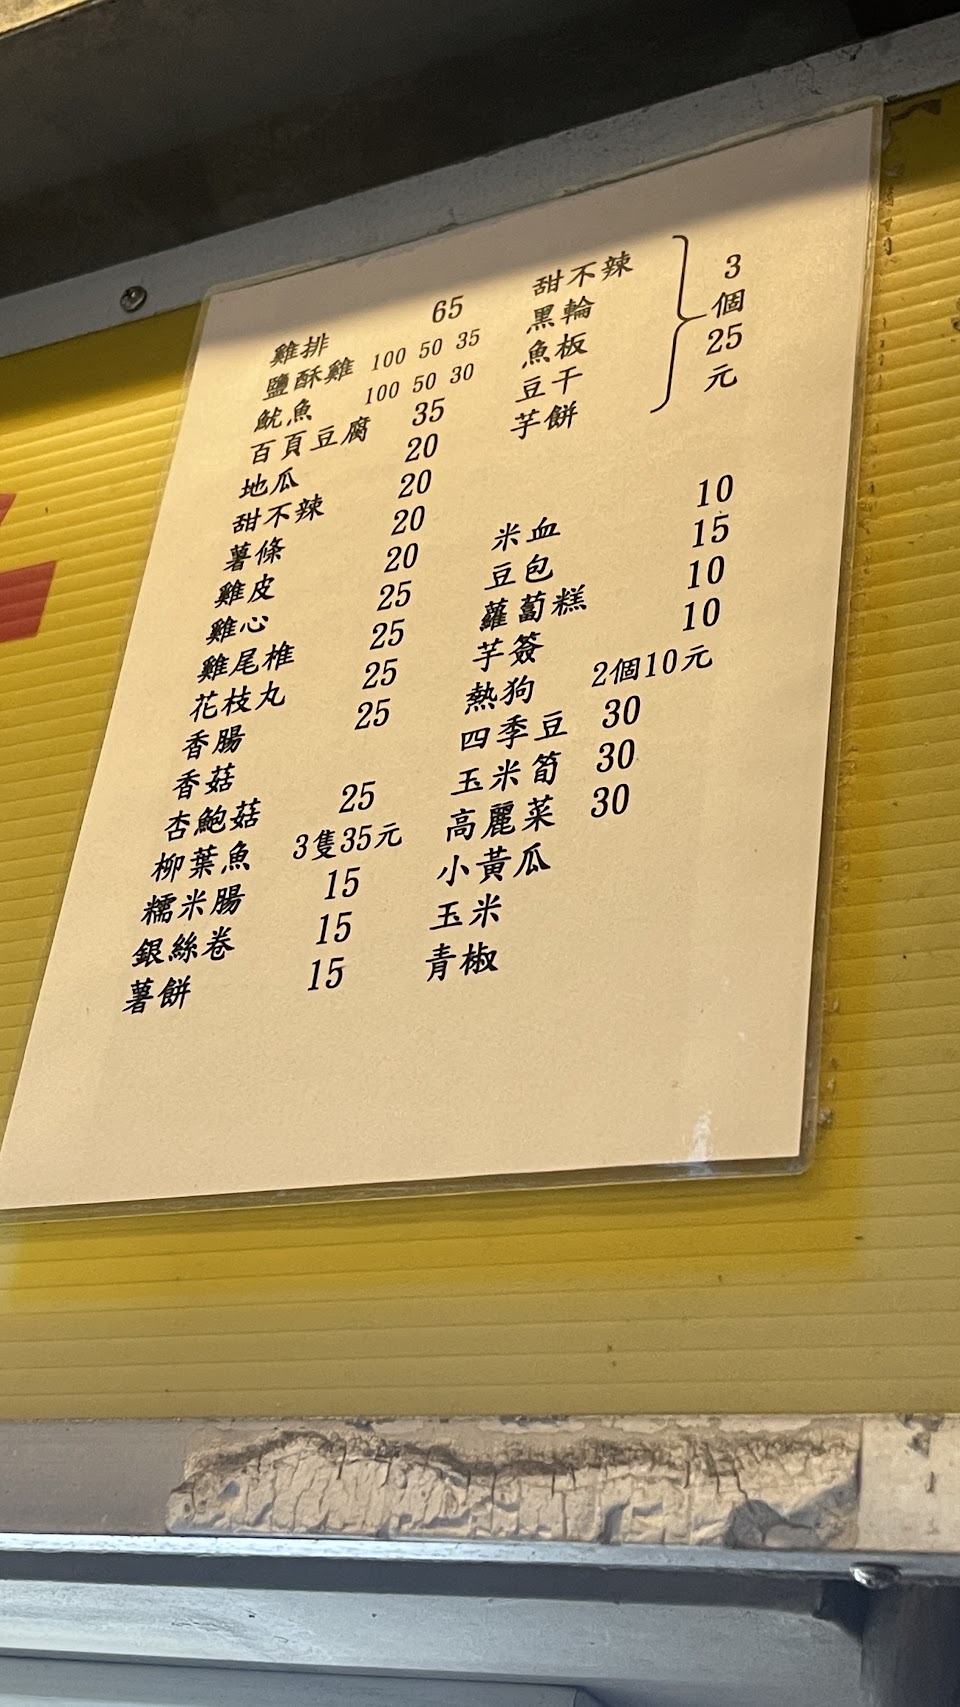 雞排 65
鹽酥雞 100 50 35
魷魚 100 50 30
百頁豆腐 35
地瓜 20
甜不辣 20
薯條 20
雞皮 20
雞心 25
雞尾椎 25
花枝丸 25
香腸 25
香菇
杏鮑菇 25
柳葉魚 3隻35元
糯米腸 15
銀絲卷 15
薯餅 15
甜不辣
黑輪
魚板
豆干
芋餅
3
個
25
元
米血 10
豆包 15
蘿蔔糕 10
芋簽 10
熱狗 2個10元
四季豆 30
玉米筍 30
高麗菜 30
小黃瓜
玉米
青椒